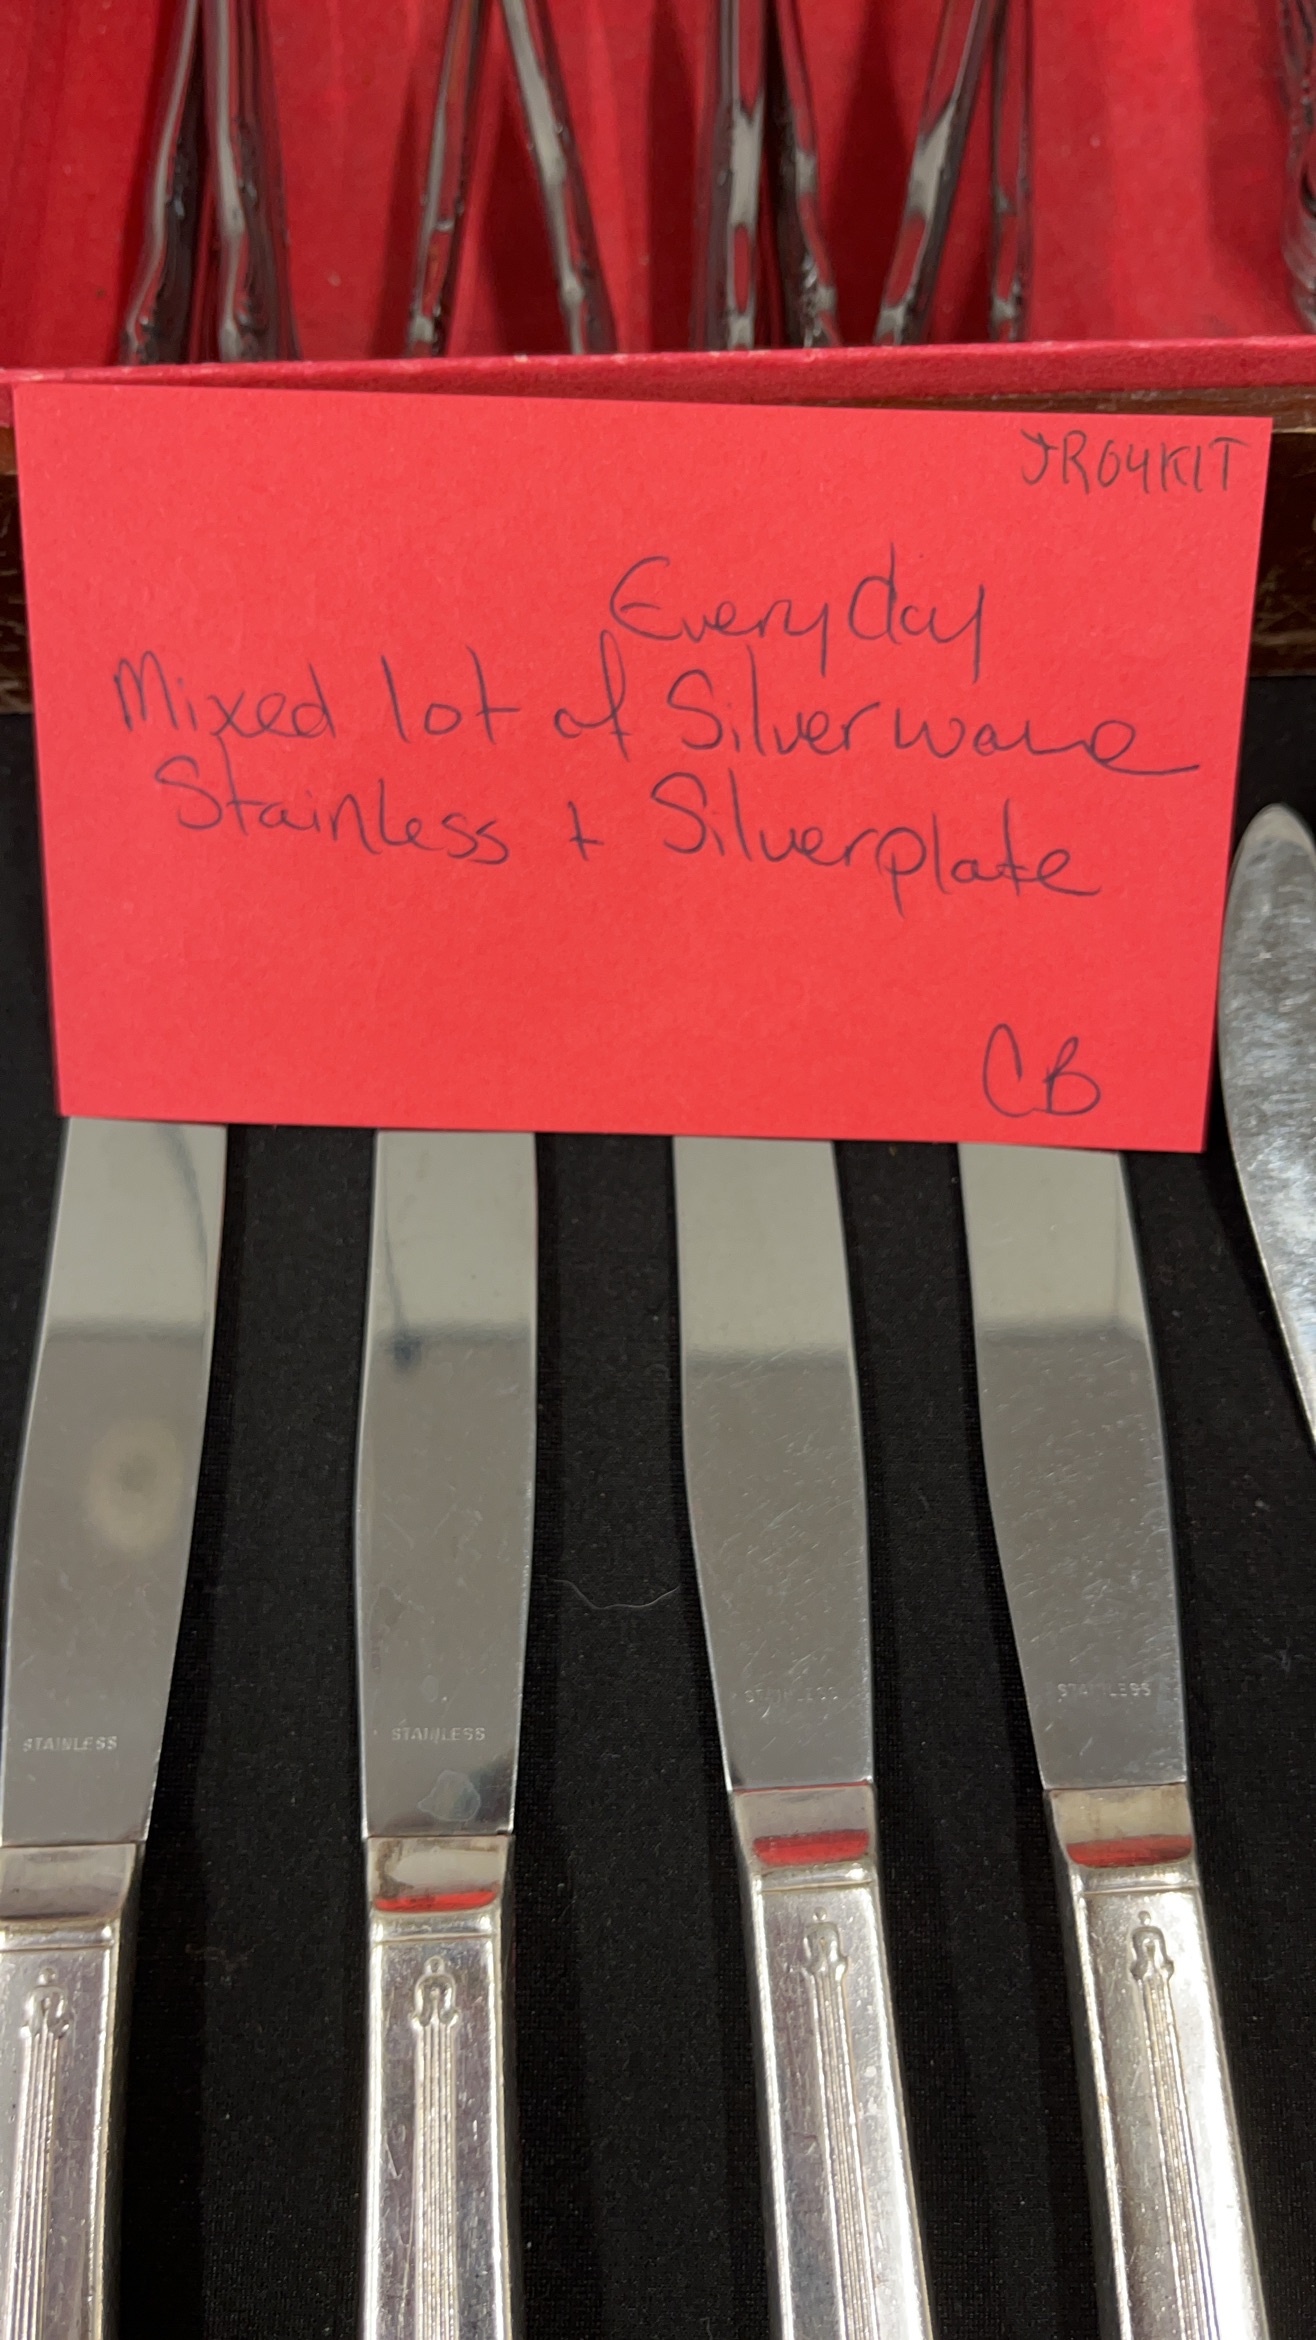 JR04KIT
Everyday
Mixed lot of Silverware
Stainless + Silverplate
CB
STAINLESS
STAINLESS
STAINLESS
STAINLESS